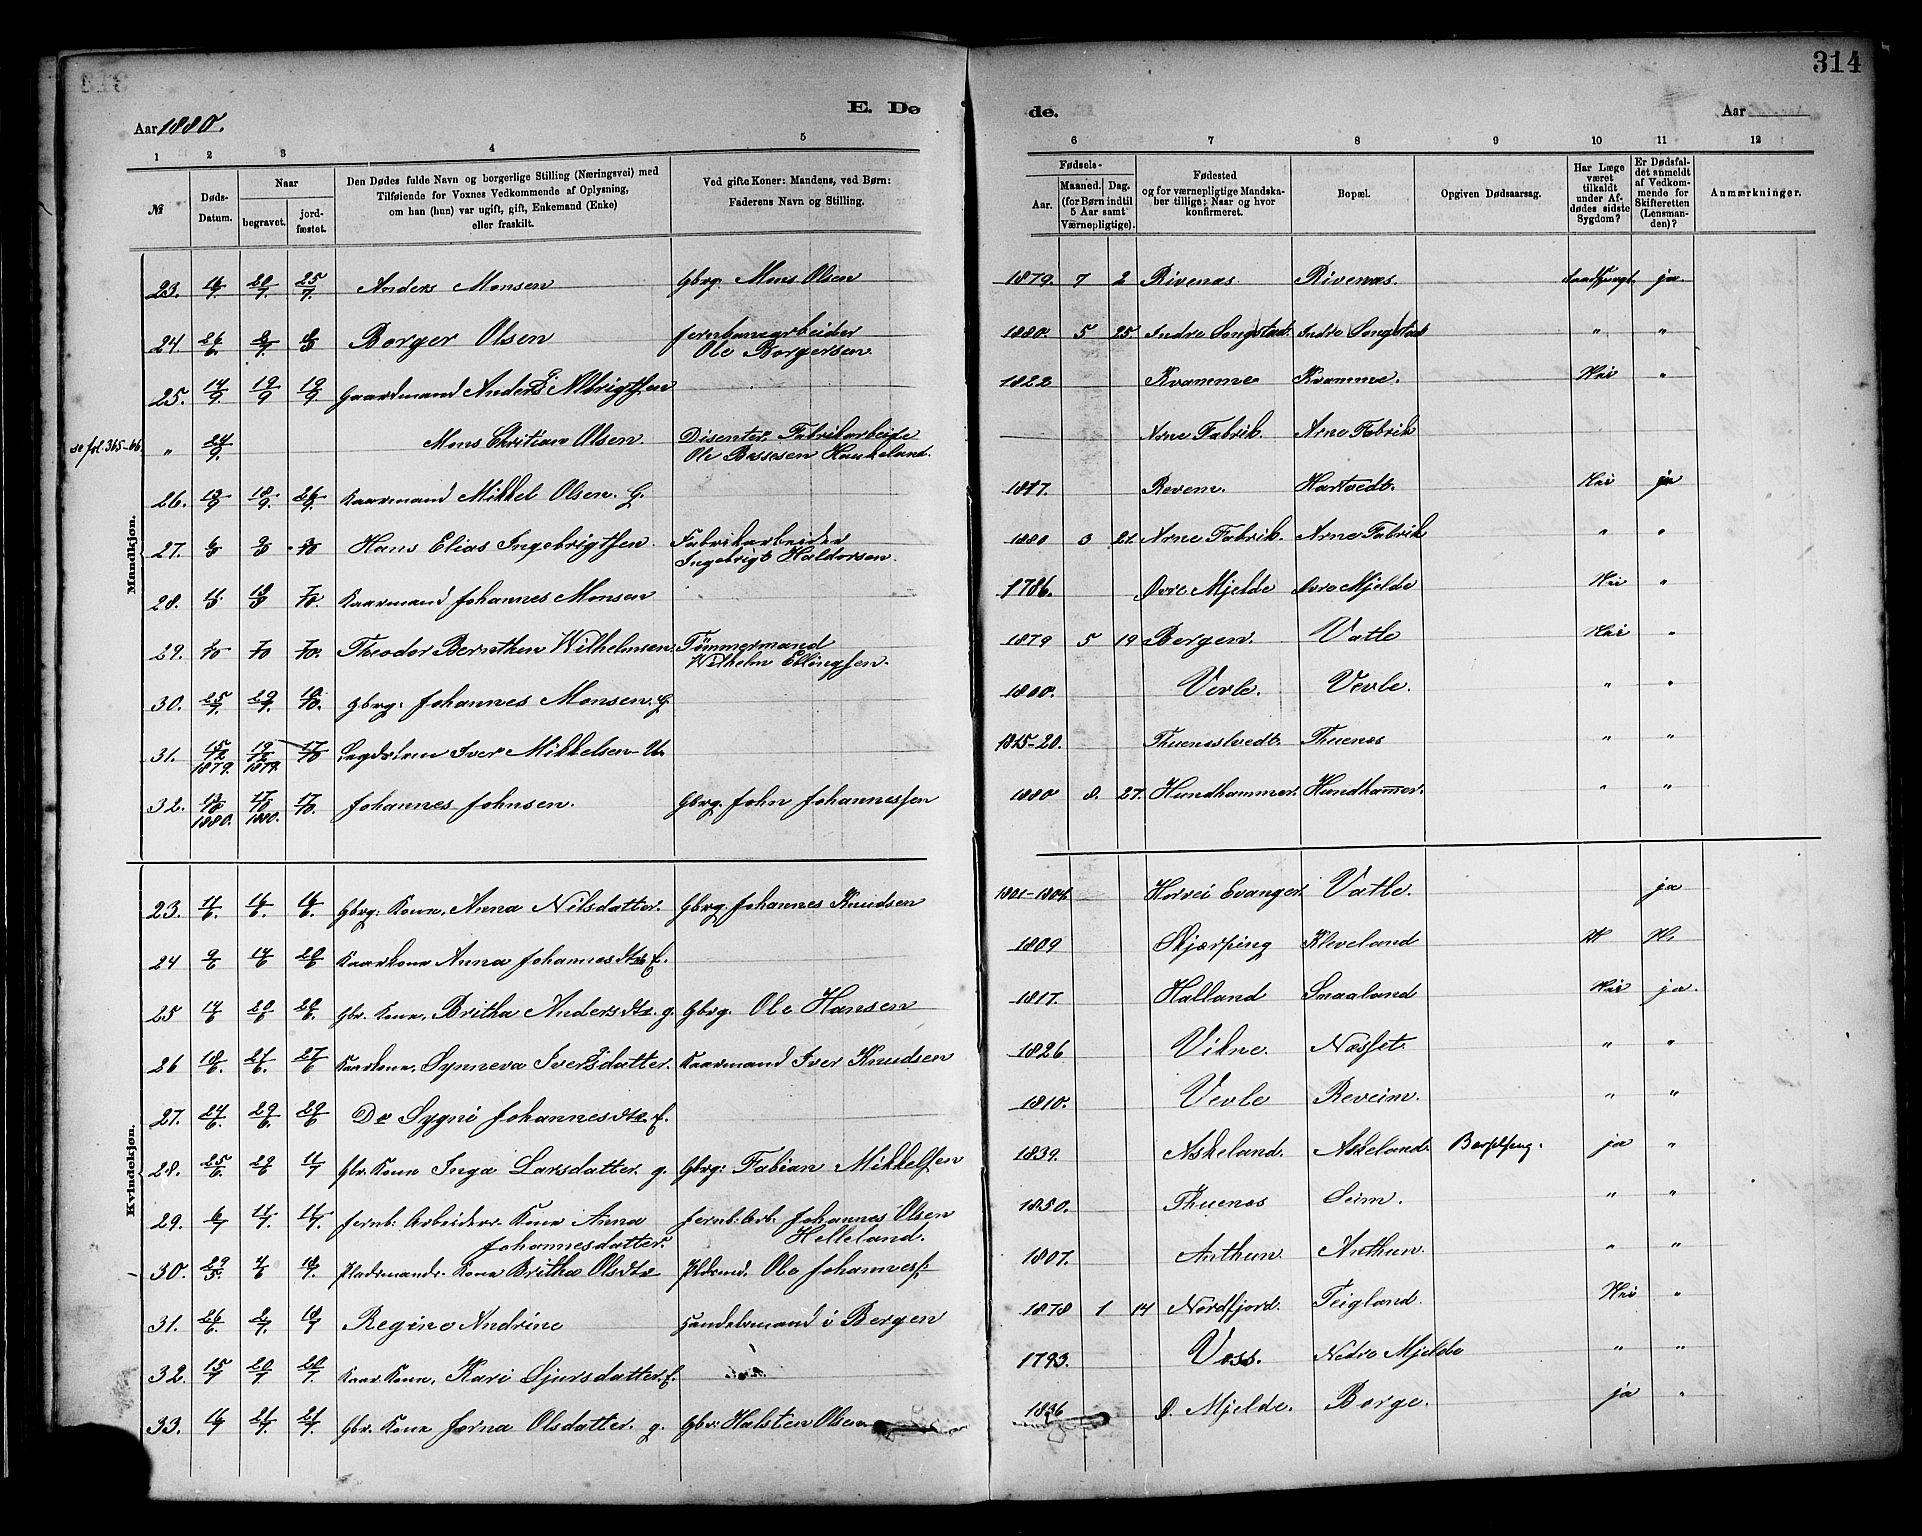 314
E. Dø de.
Aar 1880. Aar
1 2 3 4 5 6 7 8 9 10 11 12
№
Døds-Datum.
Naar
begravet.
jord-fæstet.
Den Dødes fulde Navn og borgerlige Stilling (Næringsvei) med
Tilføiende for Voxnes Vedkommende af Oplysning,
om han (hun) var ugift, gift, Enkemand (Enke)
eller fraskilt.
Ved gifte Koner: Mandens, ved Børn:
Faderens Navn og Stilling.
Fødsels-
Aar. Maaned. Dag.
(for Børn indtil
5 Aar samt
Værnepligtige).
Fødested
og for værnepligtige Mandska-
ber tillige: Naar og hvor
konfirmeret.
Bopæl.
Opgiven Dødsaarsag.
Har Læge
været
tilkaldt
under Af-
dødes sidste
Sygdom?
Er Dødsfal-
det anmeldt
af Vedkom-
mende for
Skifteretten
(Lensman-
den)?
Anmærkninger.
Mandkjøn.
23. 20/7 25/7 Anders Monsen Gbrg. Mons Olsen 1879. 7 2 Rivenæs Rivenæs. ja
24. 26/6 Borger Olsen Jernbanearbeider
Ole Borgersen 1880. 5 25. Indre Songstad. Indre Songstad " "
25. 14/9 19/9 19/9 Gaardmand Anders Albrigtsen 1822 Kvamme Kvamme. Nei "
se fol. 365-66. " 24/9 Mons Christian Olsen. Disenter Fabrikarbeide
Ole Bessesen Haukeland. Arne Fabrik. Arne Fabrik
26. 13/9 18/9 26/9 Kaarmand Mikkel Olsen. G. 1817. Revem. Hartvedt. Nei ja
27. Hans Elias Ingebrigtsen. Fabrikarbeider
Ingebrigt Haldorsen. 1880 3 21. Arne Fabrik. Arne Fabrik " "
28. Kaarmand Johannes Monsen 1786. Øvre Mjelde Øvre Mjelde Nei "
29. Theodor Bernthen Wilhelmsen. Tömmermand
Wilhelm Ellingsen. 1879 5 19 Bergen. Vatle Nei "
30. 25/9 29/9 10/10. Gbrg. Johannes Monsen. G 1800. Vevle. Vevle. " "
31. 15/12 1879. 19/12 1879. 17/10 Iver Mikkelsen U. 1815-20. Thuenæs Thuenæs " "
32. 13/10 1880. 17/10 1880. 17/10. Johannes Johnsen. Gbrg. John Johannessen 1880 8. 27. Hundhammer. Hundhammer. " "
Kvindekjøn.
23. 16/6. 16/6. Gbrg: Kone, Anna Nilsdatter. Gbrg. Johannes Knudsen 1801-1804 Horvei Evanger. Vatle. ja
24 9/6 14/6 20/6 Kaarkone Anna Johannesdtr E. 1809 Skjærping Kleveland
25 14/6 20/6 20/6. Gbr. Kone, Britha Andersdtr. g. Gbrg. Ole Hansen 1817. Halland Smaaland Nei ja.
26 18/6. 27/6. 27/6 Kaarkone, Synneva Iversdatter. Kaarmand Iver Knudsen 1826 Vikne. Næsset. " "
27. 24/6. 29/6. 29/6 Do Sygni Johannesdtr E. 1810. Vevle Reveim. " "
28. 25/6. 29/6 11/7 Gbr. Kone Inga Larsdatter. g. Gbrg: Fabian Mikkelsen 1839. Askeland. Askeland. Barselseng. ja "
29. 6/7 11/7. 11/7. Jernb: Arbeiders Kone Anna
Johannesdatter. Jernb: Arb. Johannes Olsen
Helleland. 1850. Thuenæs Seim. " "
30. 29/5. 4/6 18/7. Pladsmands Kone Britha Olsdtr Pldsmd. Ole Johannes 1807. Anthun Anthun. " "
31. 26/6. 2/7. 18/7 Regine Andrine Handelsmand i Bergen 1878 1 14 Nordfjord. Teigland. Nei "
32. 15/7 20/7. 20/7. Kaar.Kone, Kari Sjursdatter. E. 1793. Voss. Nedre Mjelde " "
33. 16/7 21/7. 21/7. Gbr. Kone Jorna Olsdatter. g. Gbr: Halsten Olsen 1836 Ø. Mjelde. Borge. ja "